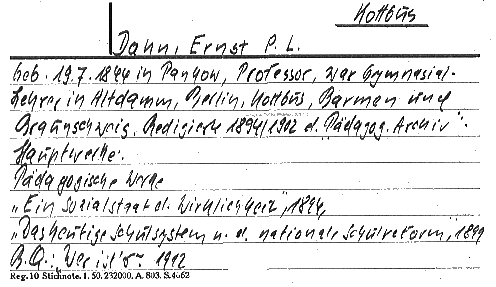 Kottbus
Dahn, Ernst P. L.
geb. 19.7.1844 in Pankow, Professor, war Gymnasial-
Lehrer in Altdamm, Berlin, Kottbus, Barmen und
Braunschweig, Redigierte 1894/1902 d. "Pädagog. Archiv".
Hauptwerke:
Pädagogische Werke
„Ein Sozialstaat d. Wirklichkeit", 1894,
„Das heutige Schulsystem u. d. nationale Schulreform, 1899
B.Q.: „Wer ist's" 1912
Reg. 10 Stichnote. I. 50. 232000. A. 803. S. 4662